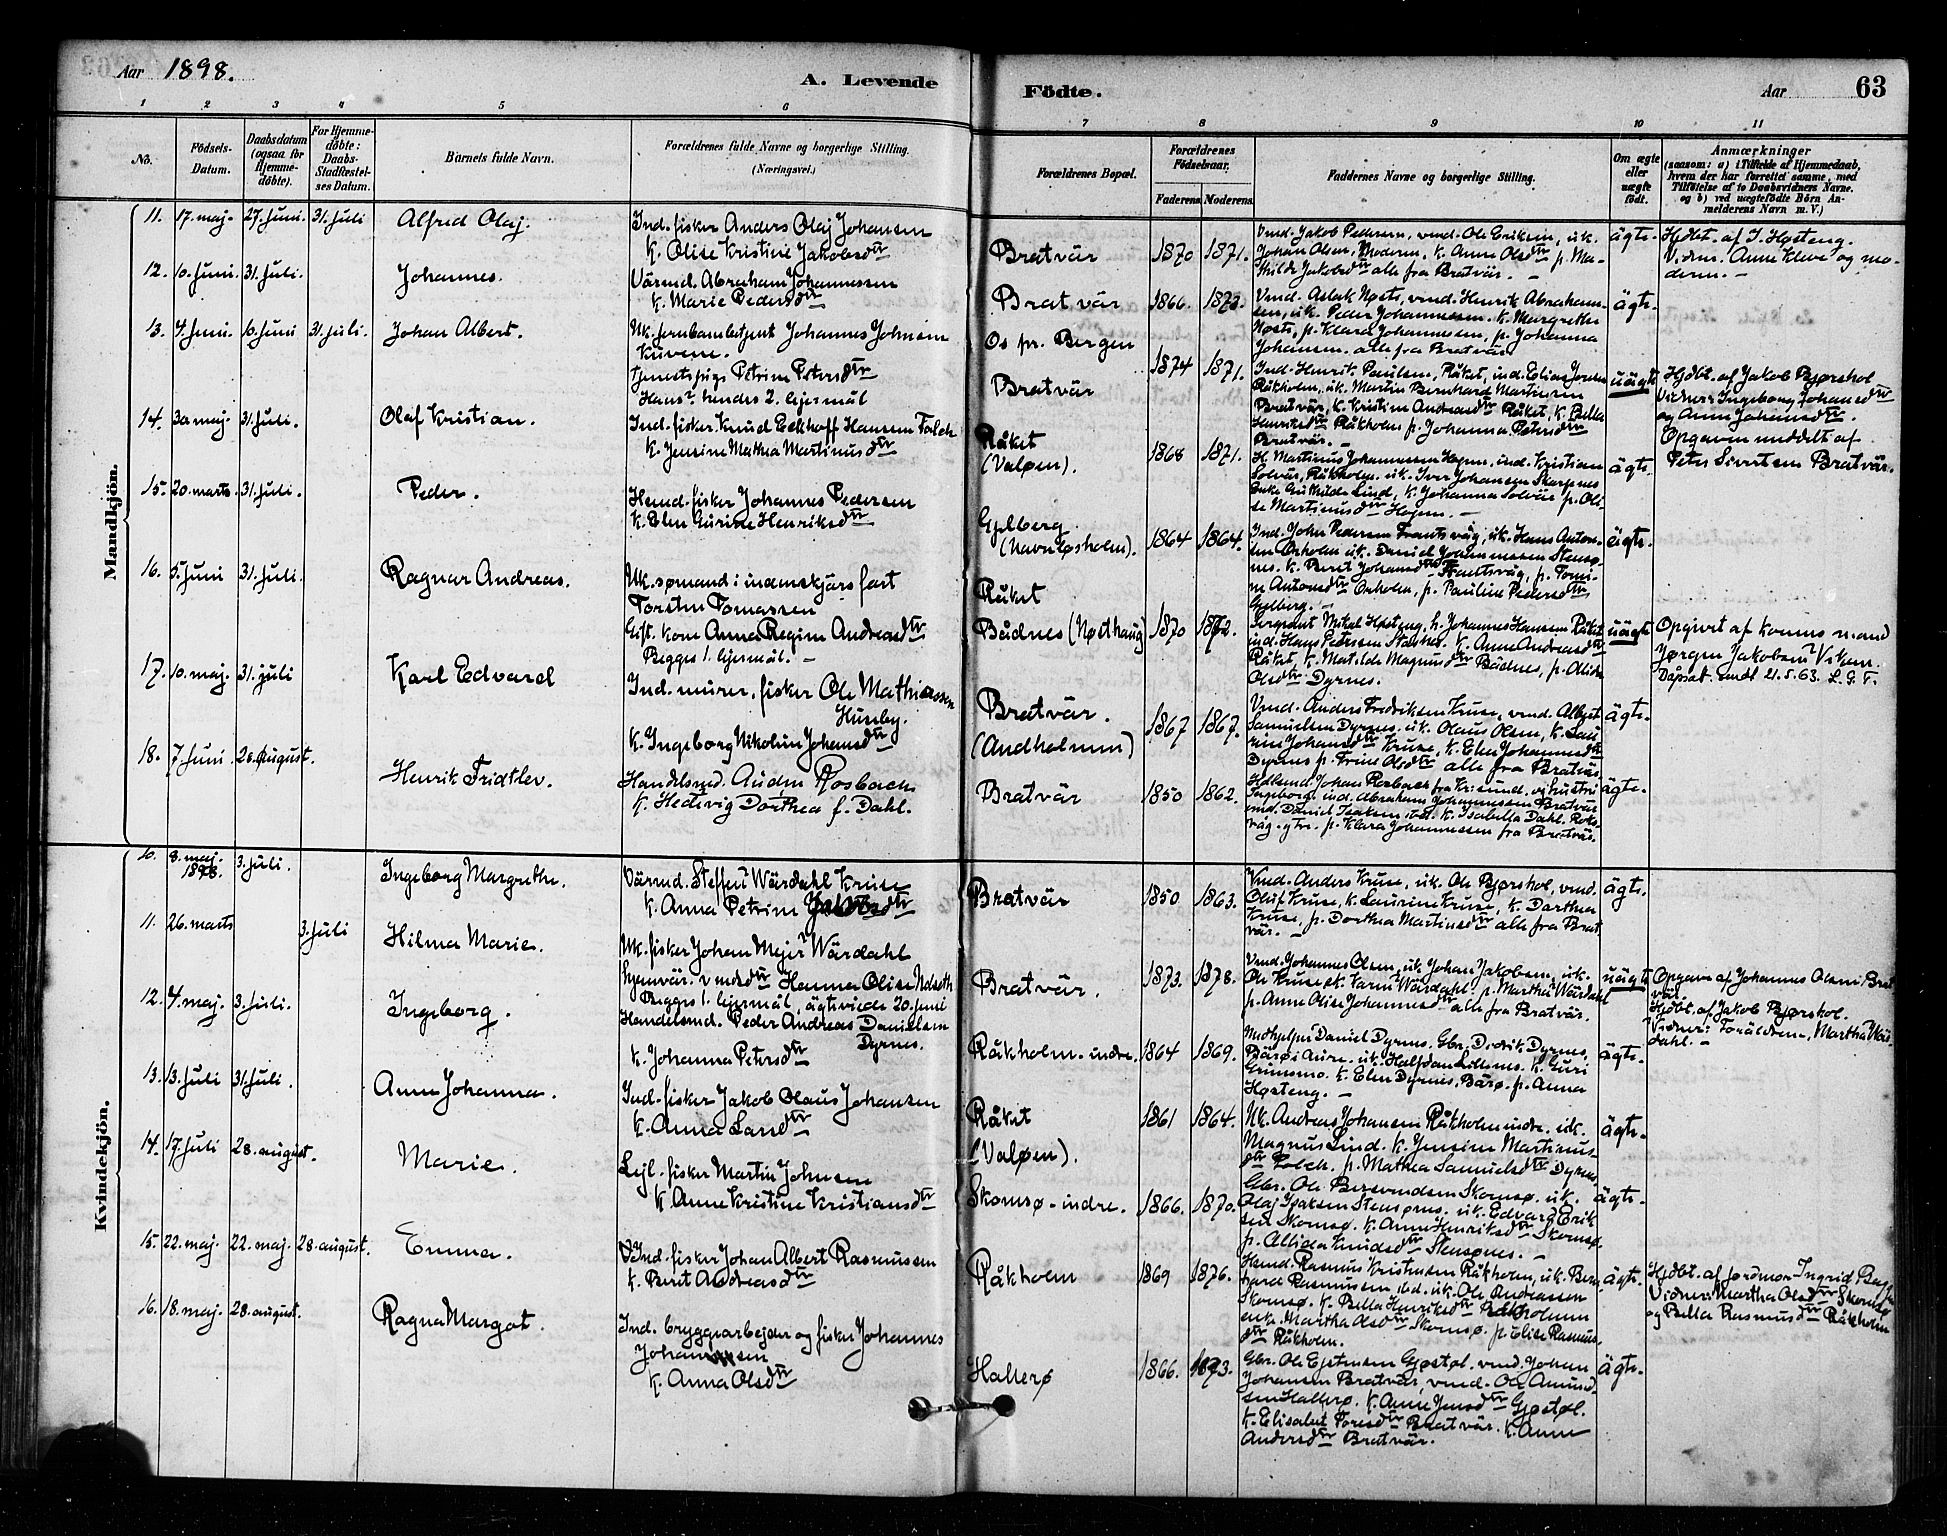 Aar 1898.
A. Levende
Födte.
Aar
63
1 2 3 4 5 6 7 8 9 10 11
No.
Födsels-
Datum.
Daabsdatum
(ogsaa for
Hjemme-
döbte).
For Hjemme-
döbte:
Daabs-
Stadfæstel-
ses Datum.
Barnets fulde Navn.
Forældrenes fulde Navne og borgerlige Stilling.
(Næringsvei.)
Forældrenes Bopæl.
Forældrenes
Födselsaar.
Faderens. Moderens.
Faddernes Navne og borgerlige Stilling.
Om ægte
eller
uægte
födt.
Anmærkninger
(saasom: a) i Tilfælde af Hjemmedaab,
hvem der har forrettet samme, med
Tilföielse af to Daabsvidners Navne.
og b) ved uægtefödte Börn An-
melderens Navn m. V.)
Mandkjön.
11. 17. maj. 27. juni. 31. juli
Alfred Olaj.
Ind. fisker Anders Olaj Johansen
K. Olise Kristine Jakobsdtr
Bratvär
1870 1871.
Vmd. Jakob Pedersen, vmd. Ole Eriksen, uk.
Johan Olsen, Moderen, K. Anne Olsdtr p. Ma-
thilde Jakobsdtr alle fra Bratvär. —
ägte.
Hjdbt. af J. Høsteng.
Vidner: Anne Kleve og mo-
deren. —
12. 10. juni. 31. juli.
Johannes.
Värmd. Abraham Johannessen
K. Marie Pedersdtr
Bratvär
1866. 1872.
Vmd. Aslak Nøsts, vmd. Henrik Abraham-
sen, uk. Peder Johannessen. K. Margrethe
Nøsts, p. Klara Johannessen, p. Johanna
Johansen. alle fra Bratvär.
ägte.
13. 4. juni. 10. juni 31. juli.
Johan Albert.
Uk. jernbanebetjent Johannes Johnsen
Kuvene.
tjenestpige Petrine Petersdtr
Hans? hendes 2. lejermål
Os pr. Bergen
Bratvär
1874 1871.
Ind. Henrik Paulsen, Råket, ind. Elias Jensen
Råkholm, uk. Martin Bernhard Martinsen
Bratvär, K. Kristine Andreasdtr Råket, K. Bella
Henriksdtr Råkholm p. Johanna Petersdtr
Bratvär. —
uägte
Hjdbt. af Jakob Bjørshol
Vidner: Ingeborg Johansdtr
og Anne Johansdtr.
Opgaven meddelt af
Peter Sivertsen Bratvär.
14. 30. maj. 31. juli.
Olaf Kristian.
Ind. fisker Knud Eckhoff Hansen Folch
K. Jensine Mathea Martinusdtr
Råket
(Valøen).
1868 1871.
H. Martinus Johannessen Hopen, ind. Kristian
Solvär, Råkholm. uk. Iver Johansen Skarpnes
Enke Guthilde Lind, K. Johanna Solvär p. Oli-
se Martinusdtr Hopen. —
ägte.
15. 20. marts. 31. juli.
Peder.
Hemd. fisker Johannes Pedersen
K. Elen Gurine Henriksdtr
Gjelberg
(Navnløsholm).
1864 1864.
Ind. John Pedersen Frantsvåg, uk. Hans Anton-
sen Orholm uk. Daniel Johannessen Stensø-
nes. K. Berit Johansdtr Frantsvåg, p. Tomi-
ne Antonsdtr Orholm, p. Pauline Pedersdtr
Gjelberg. —
ägte.
16. 5. juni 31. juli.
Ragnar Andreas.
Uk. sømand i indenskjärs fart
Torsten Tomassen
Gift. kone Anna Regine Andreasdtr
Begges 1. lejermål. —
Råket
Bådnes (Nøsthaug)
1870 1872.
Sergeant Mikal Høsteng, h. Johannes Hansen Råket
ind. Hans Petersen Staknes. K. Anne Andreasdtr
Råket, K. Matilde Magnusdtr Bådnes, p. Alida
Olsdtr Dyrnes.
uägte
Opgivet af konens mand
Jørgen Jakobsen Viken.
Dåpsat. sendt 21.5.63. L.G.T.
17. 10. maj. 31. juli
Karl Edvard
Ind. murer, fisker Ole Mathiassen
Huseby.
K. Ingeborg Nikoline Johansdtr
Bratvär.
(Andholmen)
1867 1867.
Vmd. Anders Fredriksen Kruse, vmd. Albert
Samuelsen Dyrnes, uk. Olaus Olsen, K. Lau-
rine Johansdtr Kruse, K. Elen Johannesdtr
Dyrnes p. Trine Olsdtr alle fra Bratvär.
ägte.
18. 7. juni 28. august.
Henrik Fridtlev.
Handelsmd. Audin Rosbach
K. Hedevig Dorthea f. Dahl.
Bratvär
1850 1862.
Hdlsmd. Johan Rosbach fra Kr.sund, og hustru
Ingeborg, ind. Abraham Johannessen Bratvär
md. Daniel Isaksen ibd. K. Isabella Dahl. Roks-
våg. p. Klara Johannessen fra Bratvär.
ägte.
Kvindekjön.
10. 8. maj. 1898. 3. juli.
Ingeborg Margrethe.
Värmd. Steffen Wärdahl Kruse
K. Anna Petrine Jakobsdtr
Bratvär
1850 1863.
Vmd. Anders Kruse, uk. Ole Bjørshol, vmd.
Oluf Kruse, K. Laurine Kruse, K. Dorthea
Kruse, p. Dorthea Martinsdtr alle fra Brat-
vär. —
ägte.
11. 26. marts 3. juli
Hilma Marie.
Uk. fisker Johan Mejer Wärdahl
hjemvär. vmdsdtr Hanna Olise Nolseth
Begges 1. lejermål, ägteviede 20. juni
Bratvär.
1873. 1878.
Vmd. Johannes Olsen, uk. Johan Jakobsen, uk.
Ole Kruse, K. Karen Wärdahl. p. Martha Wärdahl
p. Anna Olise Johannesdtr alle fra Bratvär.
uägte
Opgave af Johannes Olsen Brat-
vär.
Hjdbt. af Jakob Bjørshol.
Vidner: Forældrene, Martha Wär-
dahl. —
12. 4. maj. 3. juli.
Ingeborg.
Handelsmd. Peder Andreas Danielsen
Dyrnes.
K. Johanna Petersdtr
Råkholm-indre.
1864 1869.
Medhjelper Daniel Dyrnes. Gbr. Didrik Dyrnes,
Bärø i Aure. uk. Halfdan Lillenes. K. Guri
Grimsmo. K. Elen Dyrnes, Bärø. p. Anna
Høsteng. —
ägte.
13. 13. juli 31. juli.
Anne Johanna.
Ind. fisker Jakob Olaus Johansen
K. Anna Larsdtr
Råket
(Valøen).
1861 1864.
Uk. Andreas Johansen Råkholm indre. uk.
Magnus Lind. K. Jensine Martinus-
dtr Folch. p. Mathea Samuelsdtr Dyrnes
ägte.
14. 17. juli 28. august.
Marie.
Lejl. fisker Martin Johnsen
K. Anne Kristine Kristiansdtr
Skomsø-indre.
1866. 1870.
Gbr. Ole Bersvendsen Skomsø. uk.
Olaj Isaksen Stensønes. uk. Edvard Erik-
sen Skomsø. K. Anne Henriksdtr Skomsø.
p. Allida Knudsdtr Stensønes. —
ägte.
15. 22. maj. 22. maj. 28. august.
Emma.
Ind. fisker Johan Albert Rasmussen
K. Berit Andreasdtr
Råkholm
1869 1876.
Hemd. Rasmus Kristensen Råkholm, uk. Bern-
hard Rasmussen ibd. uk. Ole Andreassen
Skomsø. K. Bella Henriksdtr Råkholmen
enke Martha Olsdtr Skomsø. p. Elise Rasmus-
dtr Råkholm.
ägte.
Hjdbt. af jordmor Ingrid Bag
Vidner: Martha Olsdtr Skomsø
og Bella Rasmusdtr Råkholm
16. 18. maj. 28. august.
Ragna Margot.
Ind. bryggearbejder og fisker Johannes
Johannessen
K. Anna Olsdtr
Hallerø
1866. 1873.
Gbr. Ole Ejetmsen Gjøstøl. vmd. Johan
Johansen Bratvär, vmd. Ole Amund-
sen Hallerø. K. Anne Jensdtr Gjøstøl.
K. Elisabet Toresdtr Bratvär. K. Anne
Andersdtr Bratvär.
ägte.